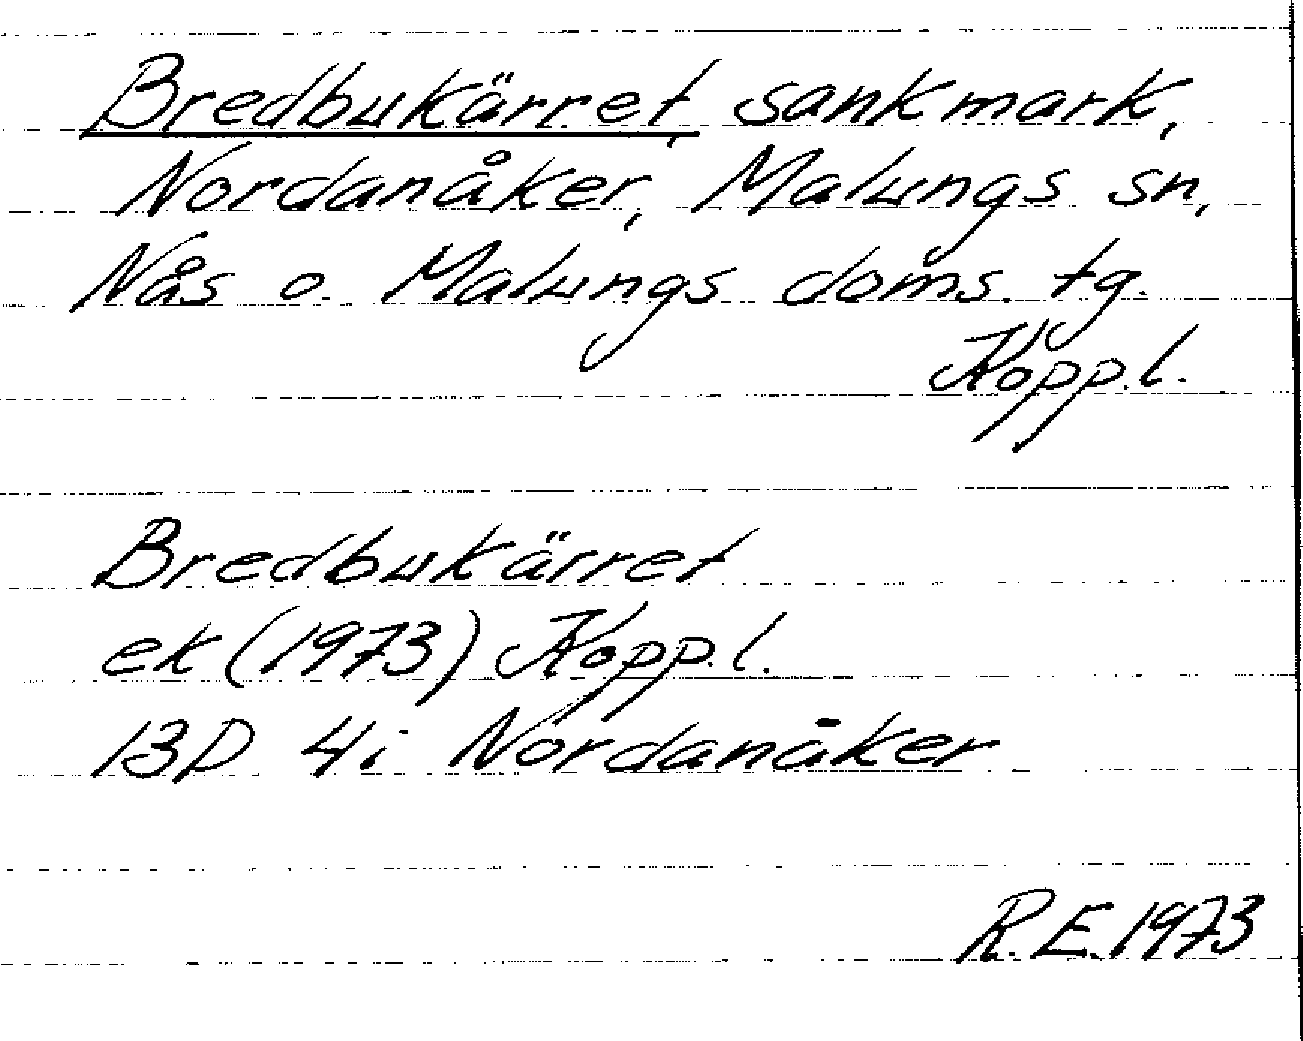 Bredbukärret, sankmark,
Nordanåker, Malungs sn,
Nås o. Malungs doms. tg.
Kopp.l.
Bredbukärret
ek (1973) Kopp.l.
13D 4i Nordanåker
R.E. 1973